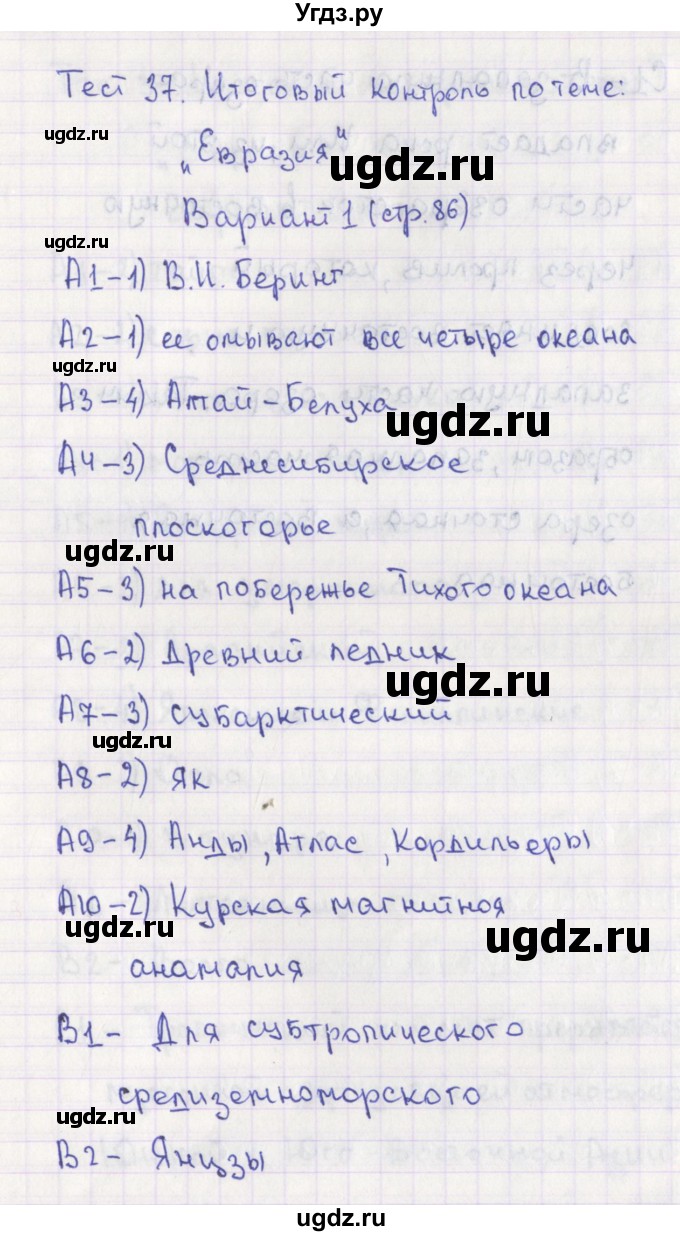 Угдз.ру
Тест 37. Итоговый контроль по теме:
ugdz.ru
„Евразия"
ugdz.ru
Вариант 1 (стр. 86)
ugdz.ru
А1-1) В.И. Беринг
А2-1) ее омывают все четыре океана
ugdz.ru
А3-4) Алтай-Белуха
ugdz.ru
А4-3) Среднесибирское
плоскогорье
ugdz.ru
А5-3) на побережье Тихого океана
А6-2) Древний ледник
ugdz.ru
А7-3) субарктический
ugdz.ru
А8-2) як
А9-4) Анды, Атлас, Кордильеры
А10-2) Курская магнитноя
ugdz.ru
ugdz.ru
аномалия
В1- Для субтропического
средиземноморского
ugdz.ru
В2- Янцзы
ugdz.ru